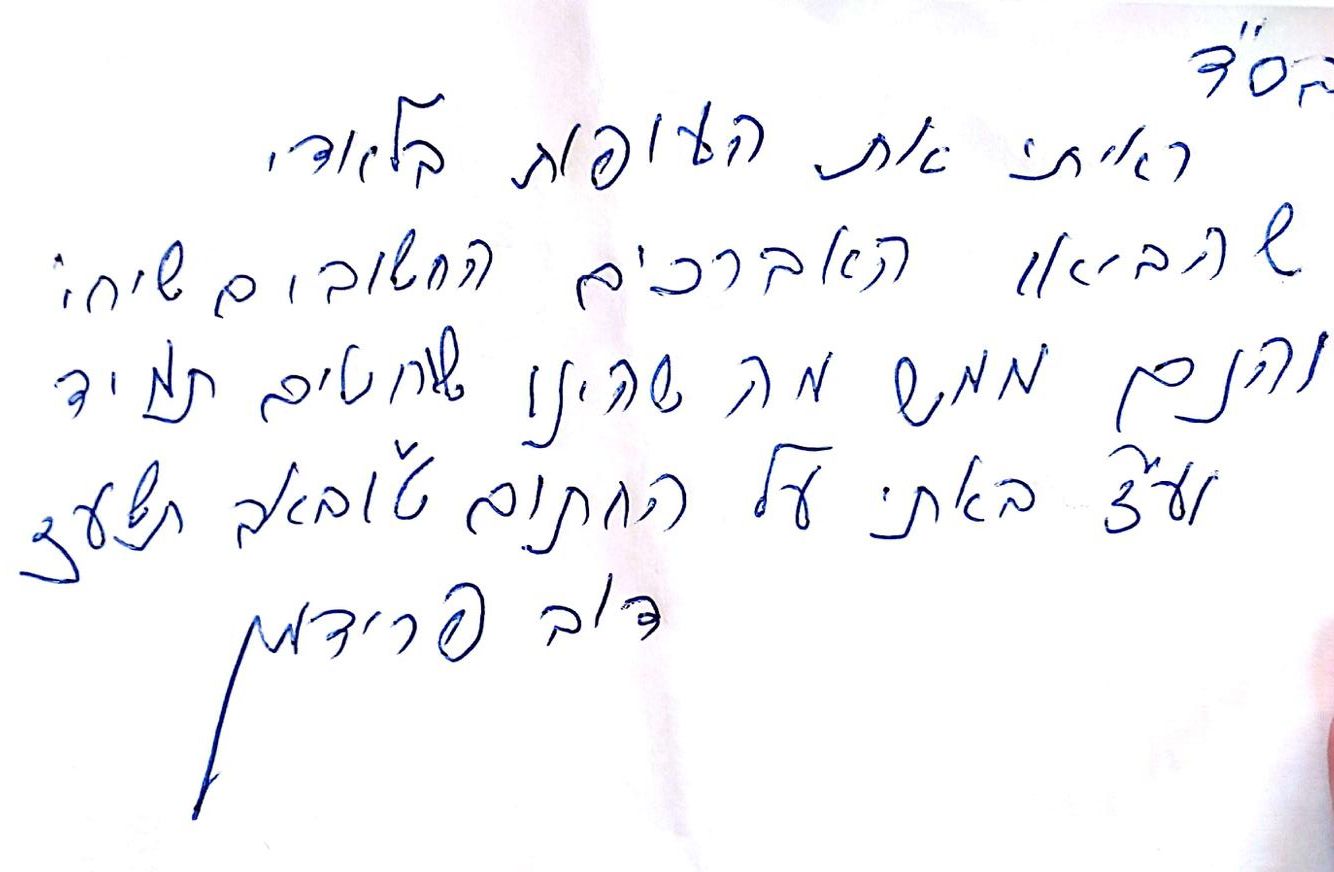 בס"ד
ראיתי את העופות בלאודי
שהביאו האברכים החשובים שיחי'
והנם ממש מה שהינו שוחטים תמיד
וע"ז באתי על החתום ט"ו באב תשע"ז
דוב פרידמן